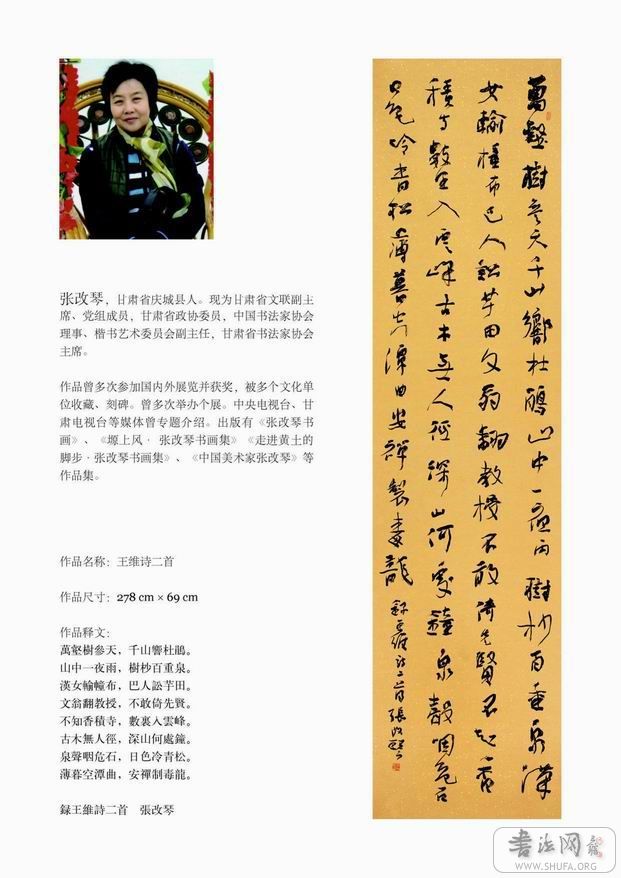 张改琴，甘肃省庆城县人。现为甘肃省文联副主
席、党组成员，甘肃省政协委员，中国书法家协会
理事、楷书艺术委员会副主任，甘肃省书法家协会
主席。
作品曾多次参加国内外展览并获奖，被多个文化单
位收藏、刻碑。曾多次举办个展。中央电视台、甘
肃电视台等媒体曾专题介绍。出版有《张改琴书
画》、《塬上风· 张改琴书画集》《走进黄土的
脚步·张改琴书画集》、《中国美术家张改琴》等
作品集。
作品名称：王维诗二首
作品尺寸：278 cm × 69 cm
作品释文：
萬壑樹參天，千山響杜鵑。
山中一夜雨，樹杪百重泉。
漢女輸幢布，巴人訟芋田。
文翁翻教授，不敢倚先賢。
不知香積寺，數裏入雲峰。
古木無人徑，深山何處鐘。
泉聲咽危石，日色冷青松。
薄暮空潭曲，安禪制毒龍。
録王維詩二首　張改琴
萬壑樹參天千山響杜鵑山中一夜雨樹杪百重泉漢
女輸橦布巴人訟芋田文翁翻教授不敢倚先賢不知香
積寺數里入雲峰古木無人徑深山何處鐘泉聲咽危石
日色冷青松薄暮空潭曲安禪製毒龍 錄王維詩二首 張改琴
書法网
WWW.SHUFA.ORG